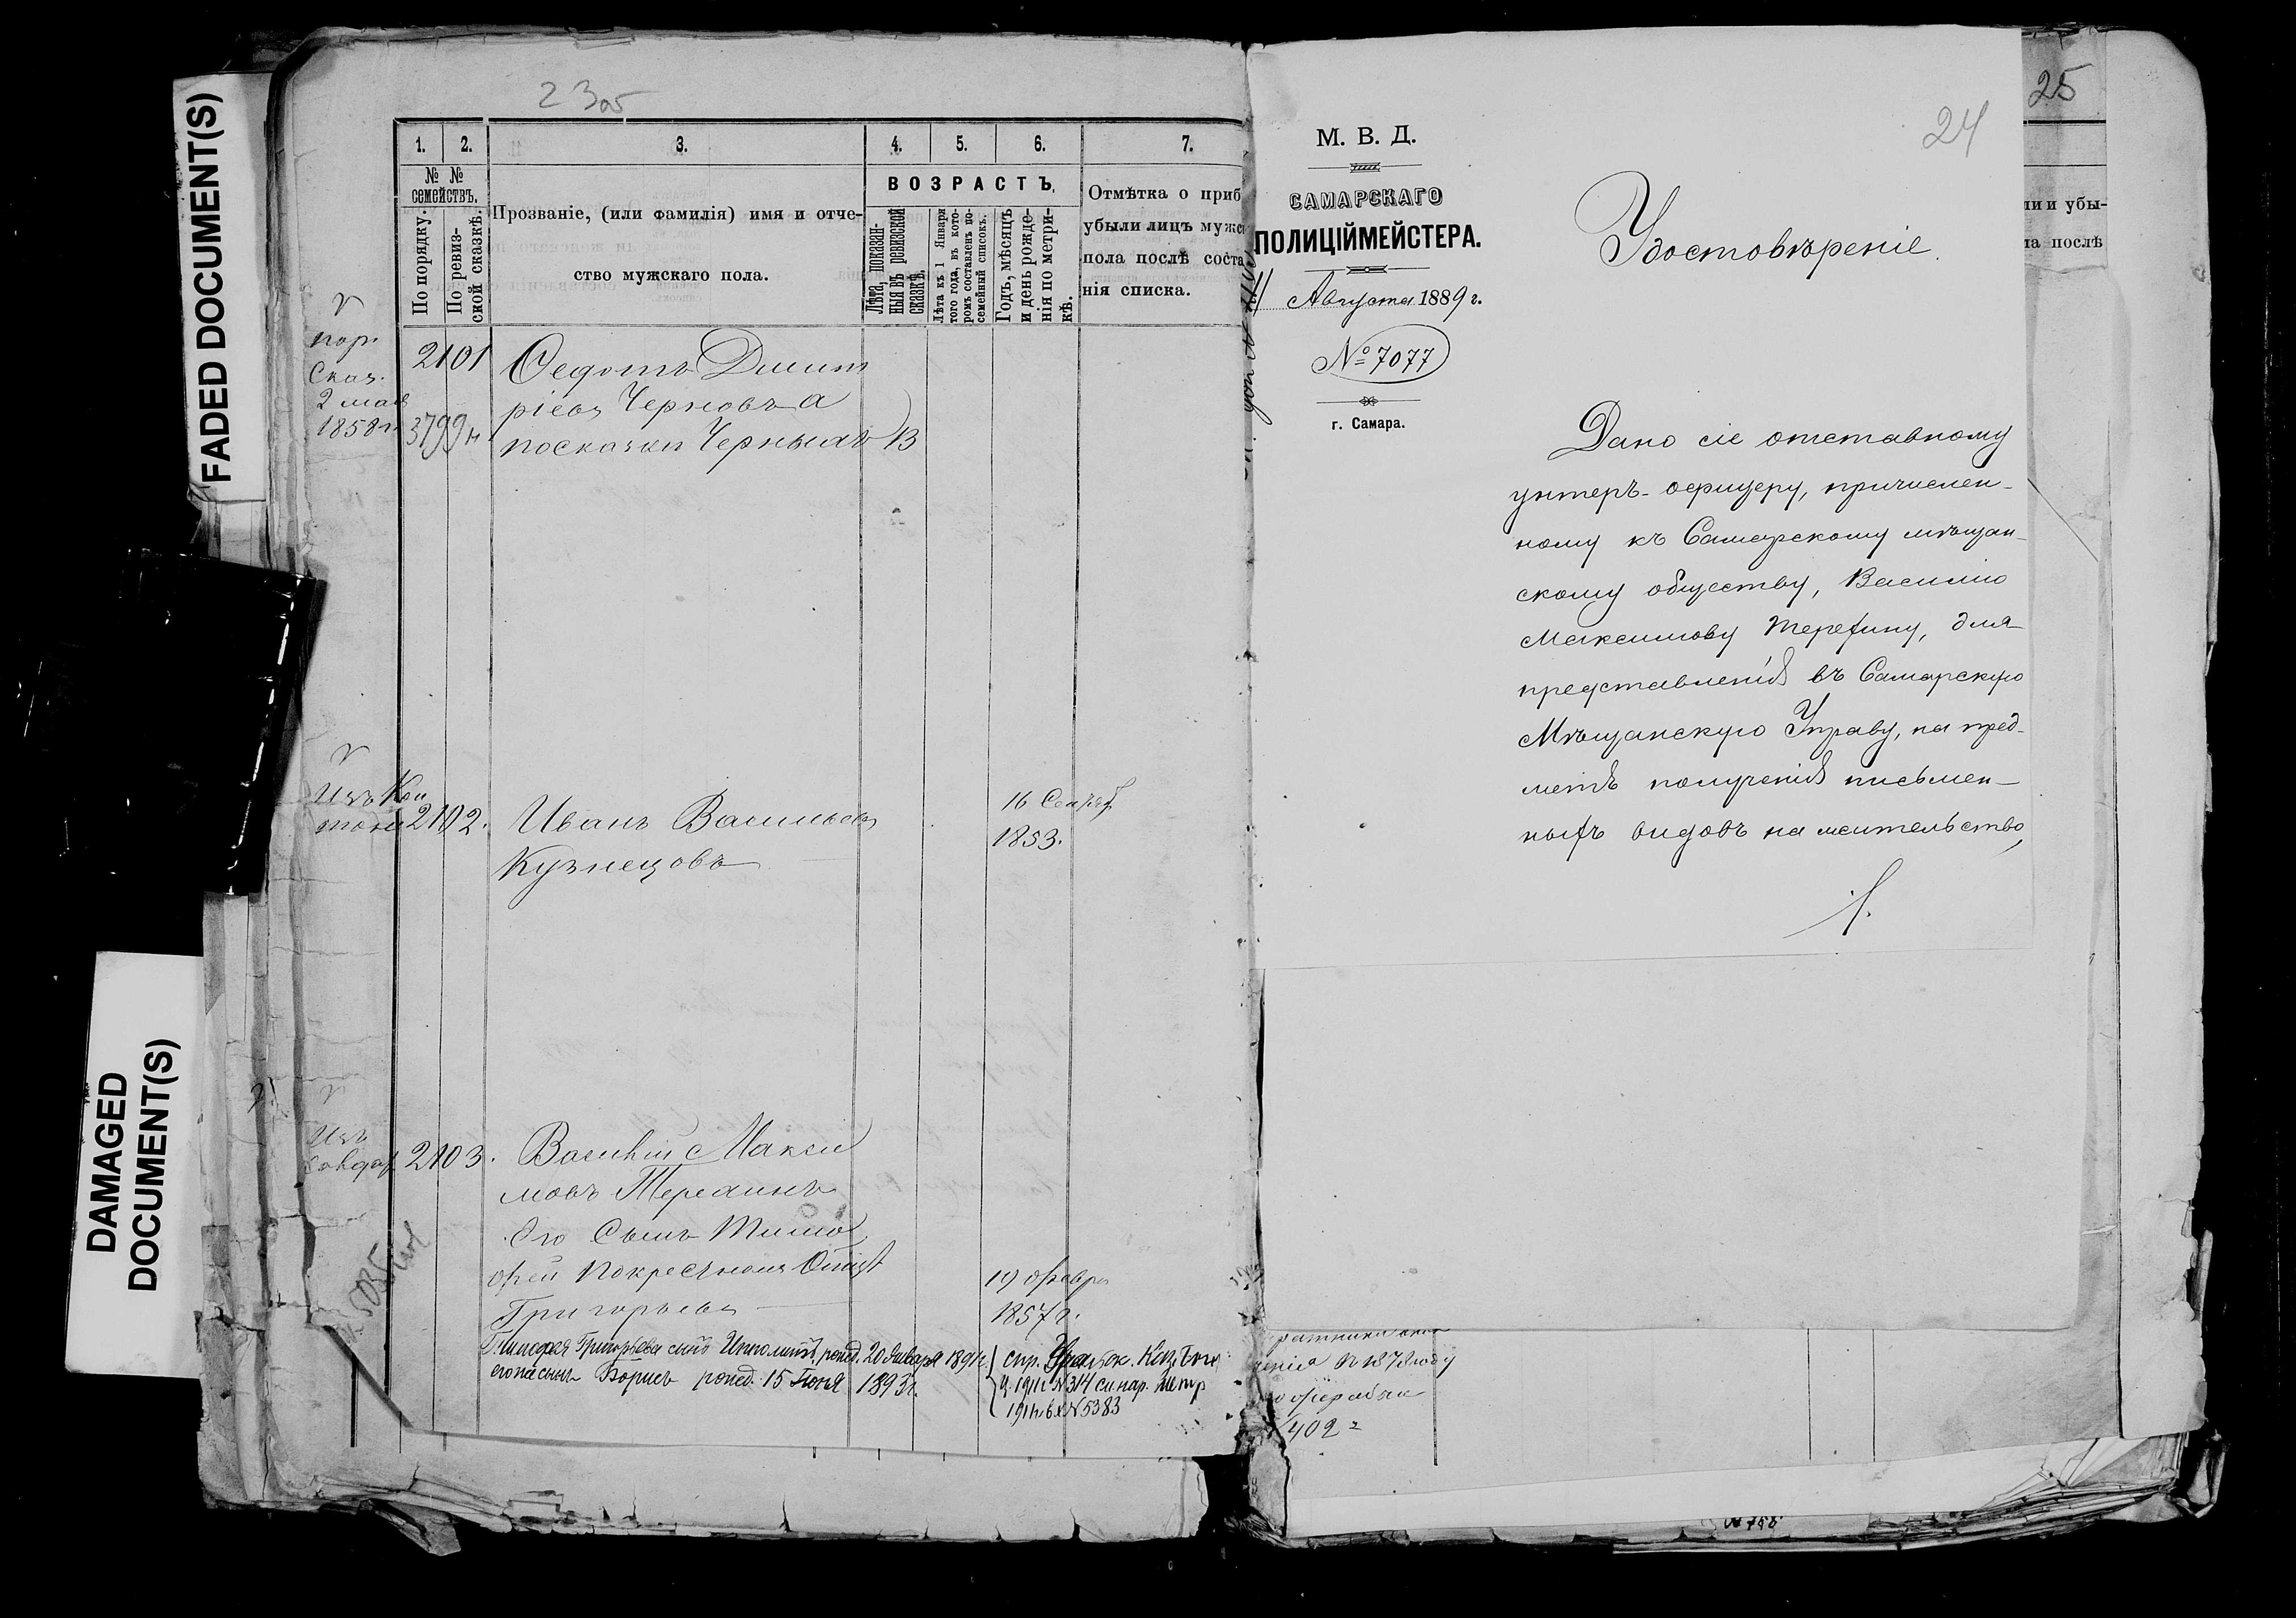 FADED DOCUMENT(S)
DAMAGED DOCUMENT(S)
23об
1. 2. 3. 4. 5. 6. 7.
№ № семействъ.
По порядку.
По ревиз-
ской сказкѣ.
Прозваніе, (или фамилія) имя и отче-
ство мужскаго пола.
ВОЗРАСТЪ.
Лѣта, показан-
ныя въ ревизской
сказкѣ.
Лѣта къ 1 Января
того года, въ кото-
ромъ составленъ по-
семейный списокъ.
Годъ, мѣсяцъ
и день рожде-
нія по метри-
кѣ.
Отмѣтка о приб
убыли лицъ мужс
пола послѣ соста
нія списка.
Сказ.
2 мая
1858 г.
2101
3799
Федотъ Димит
ріевъ Черновъ а
по сказки Черныхъ 13
Изъ Кан
2102.
Иванъ Васильевъ
Кузнецовъ
16 Сентяб
1853.
Изъ
2103.
Василій Макси
мовъ Терехинъ
Его Сынъ Тимо
фей по крестном Отцѣ
Григорьевъ
19 февра
1857 г.
Тимофея Григорьева сынъ Ипполитъ, рожд. 20 Января 1891 г.
его же сынъ Борисъ рожд. 15 Іюня 1893 г.
1911 г. № 314
№ 5383
24
М. В. Д.
САМАРСКАГО
ПОЛИЦІЙМЕЙСТЕРА.
11 Августа 1889 г.
№ 7077
г. Самара.
Удостовѣреніе.
Дано сіе отставному
унтеръ-офицеру, причислен-
ному къ Самарскому мѣщан-
скому обществу, Василію
Максимову Терехину, для
представленія въ Самарскую
Мѣщанскую Управу, на пред-
метъ полученія письмен-
ныхъ видовъ на жительство,
25
ли и убы-
ла послѣ
1878 году
402
№ 758